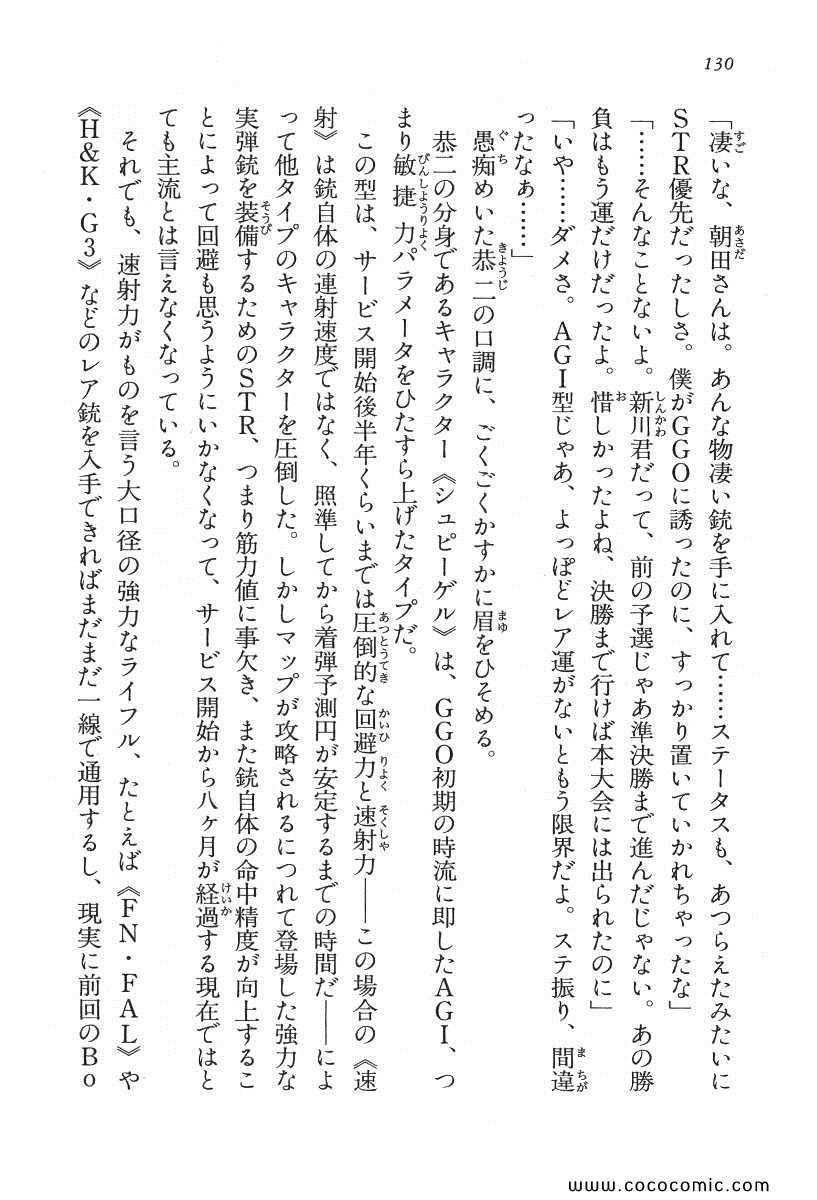 130
「凄いな、朝田さんは。あんな物凄い銃を手に入れて……ステータスも、あつらえたみたいに
STR優先だったしさ。僕がGGOに誘ったのに、すっかり置いていかれちゃったな」
「……そんなことないよ。新川君だって、前の予選じゃあ準決勝まで進んだじゃない。あの勝
負はもう運だけだったよ。惜しかったよね、決勝まで行けば本大会には出られたのに」
「いや……ダメさ。AGI型じゃあ、よっぽどレア運がないともう限界だよ。ステ振り、間違
ったなぁ……」
愚痴めいた恭二の口調に、ごくごくかすかに眉をひそめる。
恭二の分身であるキャラクター《シュピーゲル》は、GGO初期の時流に即したAGI、つ
まり敏捷力パラメータをひたすら上げたタイプだ。
この型は、サービス開始後半年くらいまでは圧倒的な回避力と速射力――この場合の《速
射》は銃自体の連射速度ではなく、照準してから着弾予測円が安定するまでの時間だ――によ
って他タイプのキャラクターを圧倒した。しかしマップが攻略されるにつれて登場した強力な
実弾銃を装備するためのSTR、つまり筋力値に事欠き、また銃自体の命中精度が向上するこ
とによって回避も思うようにいかなくなって、サービス開始から八ヶ月が経過する現在ではと
ても主流とは言えなくなっている。
それでも、速射力がものを言う大口径の強力なライフル、たとえば《FN・FAL》や
《H&K・G3》などのレア銃を入手できればまだまだ一線で通用するし、現実に前回のBo
www.cococomic.com